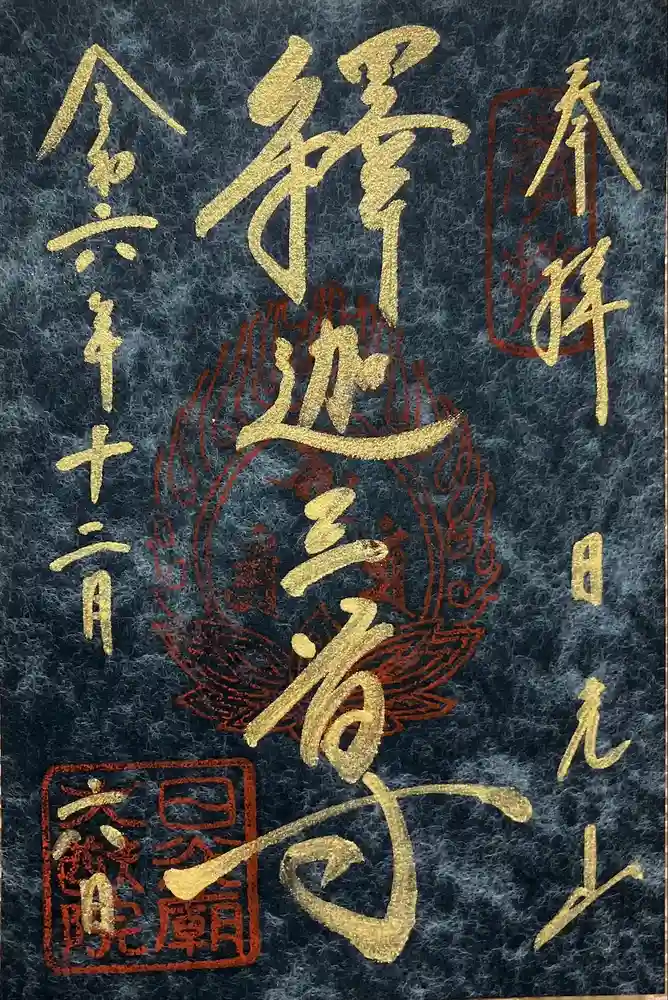 奉拝 日光山
釋迦三尊
令和六年十二月六日
日光廟
大猷院